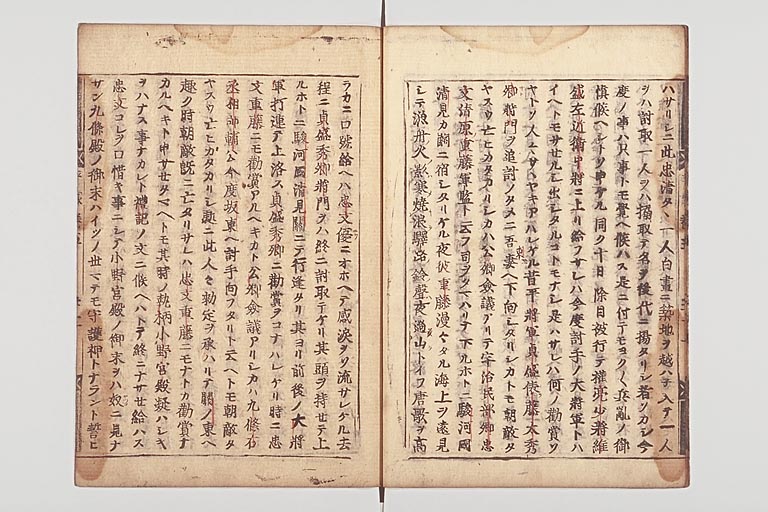 ハサリシニ此忠清タヽ一人白晝ニ築地ヲ越ハテ入テ一人
ヲハ討取一人ヲハ搦取テ名ヲ後代ニ揚タリシ者ソカシ今
度ノ事ハ只事トモ覺ヘ候ハス是ニ付テモヨク〱兵亂ノ御
慎候ヘシトソ申ケル同ク十日除目被行テ權亮少將維
盛左近衛中將ニ上リ給フサレハ今度討手ノ大將軍トハ
イヘトモサセルシ出シタルコトモナシ是ハサレハ何ノ勸賞ソ
ヤトソ人ミナサヽヤキアハレケル昔平將軍貞盛俵藤太秀
郷將門ヲ追討ノタメニ吾妻ヘ下向シタリシカトモ朝敵タ
ヤスク亡ヒカタカリシカハ公卿僉議アリテ宇治民部卿忠
文清原重藤軍監ト云フ司ヲタマハリテ下ルホトニ駿河國
清見カ關ニ宿シタリケル夜彼重藤漫々タル海上ヲ遠見
シテ漁舟火影寒燒浪驛路鈴聲夜過山トイフ唐歌ヲ高
ラカニ口號給ヘハ忠文優ニオホヘテ感涙ヲソ流サレケル去
程ニ貞盛秀郷將門ヲハ終ニ討取テケリ其頭ヲ持セテ上
ルホトニ駿河國清見關ニテ行逢タリ其ヨリ前後ノ大將
軍打連テ上洛ス貞盛秀郷ニ勸賞ヲコナハレケリ時ニ忠
文重藤ニモ勸賞アルヘキカト公卿僉議アリシカハ九條右
丞相師輔公今度坂東ヘ討手向フタリト云ヘトモ朝敵タ
ヤスク亡ヒカタカリシ處ニ此人々勅定ヲ承ハリテ關ノ東ヘ
趣ク時朝敵既ニ亡タリサレハ忠文重藤ニモナトカ勸賞ナ
カルヘキト申サセタマヘトモ其時ノ執柄小野宮殿疑ハシキ
ヲハナス事ナカレト禮記ノ文ニ候ヘハトテ終ニナサセ給ハス
忠文コレヲ口惜キ事ニシテ小野宮殿ノ御末ヲハ奴ニ見ナ
サン九條殿ノ御末ハイツノ世マテモ守護神トナラント誓ヒ